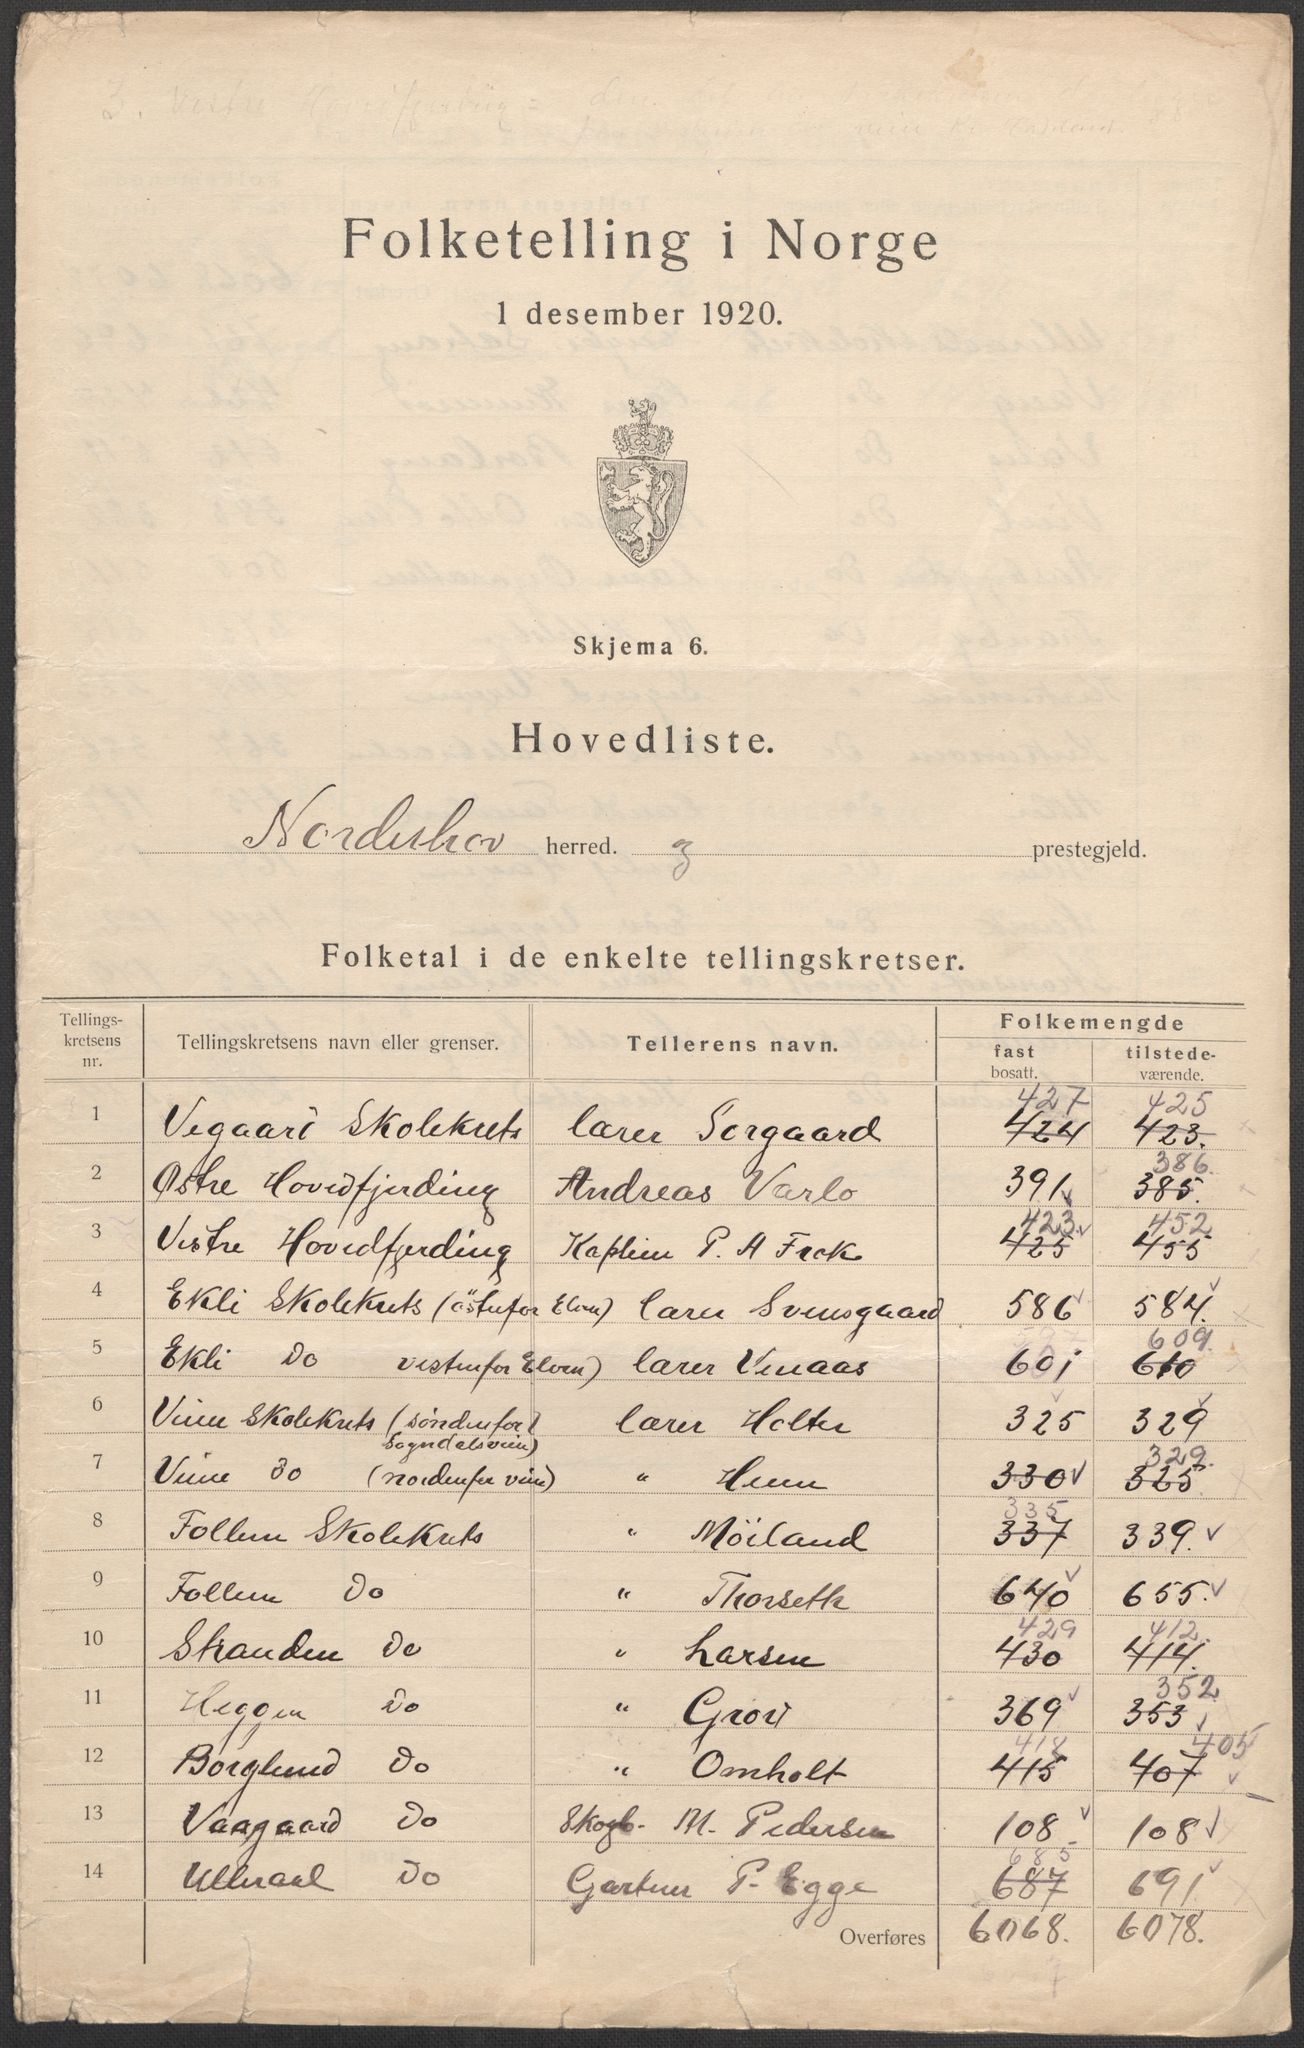 Folketelling i Norge
1 desember 1920.
Skjema 6.
Hovedliste.
Norderhov herred. og prestegjeld.
Folketal i de enkelte tellingskretser.
Tellings-kretsens nr. Tellingskretsens navn eller grenser. Tellerens navn. Folkemengde
fast bosatt. tilstede-værende.
427 425
1 Vegaard Skolekrets lærer Sorgaard 424 423.
386.
2 Østre Hovedfjerding Andreas Varlo 391 385.
423 452
3 Vestre Hovedfjerding Kaptein P. A Frok 425 455
4 Ekli Skolekrets (östenfor Elven) lærer Svensgaard 586 584.
609.
5 Ekli Do vestenfor Elven) lærer Venaas 601 610
6 Veme Skolekrets (söndenfor Sogndalsveien) lærer Holter 325 329
329.
7 Veme Do (nordenfor veien) " Heen 330 325.
335
8 Follum Skolekrets " Möiland 337 339.
9 Follum Do " Thorseth 640 655.
429 412.
10 Stranden Do " Larsen 430 414.
352
11 Heggen Do " Grov 369 353
418 405
12 Borglund Do " Omholt 415 407
13 Vaagaard Do Skogb. M. Pedersen 108 108
685
14 Ulleraal Do Gartner P. Egge 687 691
Overføres 6068. 6078.